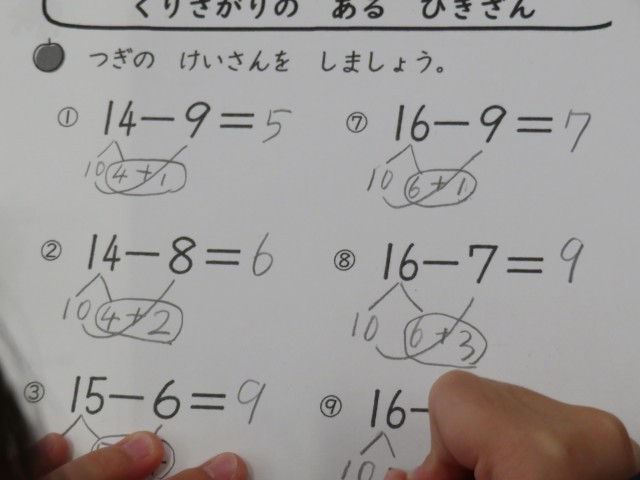 くりさがりの ある ひきざん
つぎの けいさんを しましょう。
① 14－9＝5
10 4+1
② 14－8＝6
10 4+2
③ 15－6＝9
⑦ 16－9＝7
10 6+1
⑧ 16－7＝9
10 6+3
⑨ 16－
10